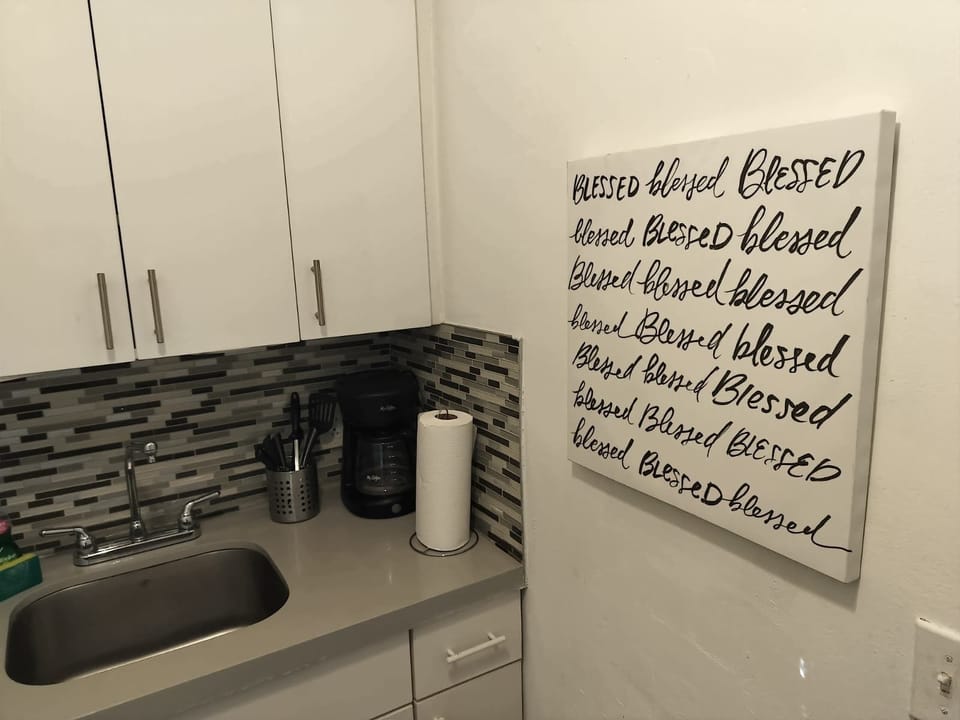 BLESSED blessed BLESSED
blessed BLesseD blessed
Blessed blessed blessed
blessed Blessed blessed
Blessed blessed Blessed
blessed Blessed BLESSED
blessed BLesseD blessed
Mr. Coffee